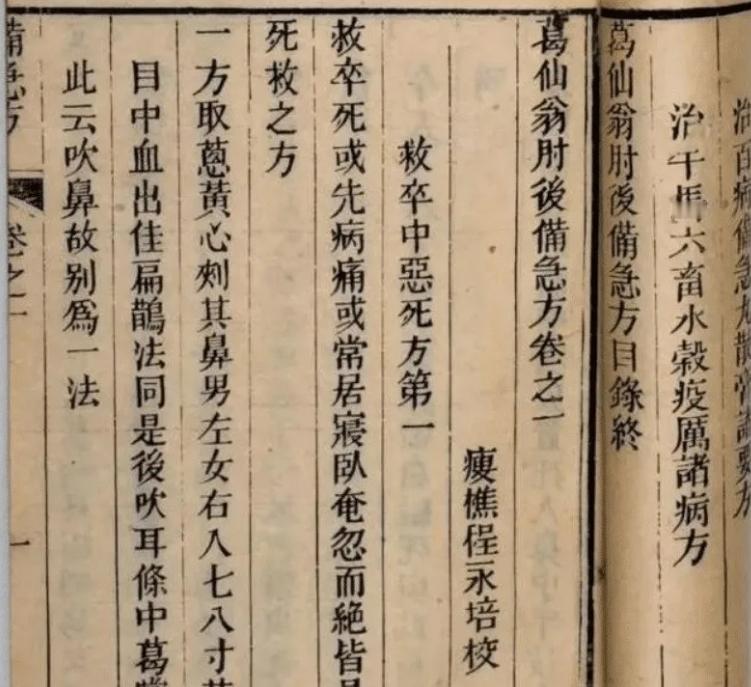 治百病備急丸散膏諸要方
治牛馬六畜水穀疫厲諸病方
葛仙翁肘後備急方目錄終
葛仙翁肘後備急方卷之一
瘦樵程永培校
救卒中惡死方第一
救卒死或先病痛或常居寢臥奄忽而絕皆是
死救之方
一方取蔥黃心刾其鼻男左女右入七八寸若
目中血出佳扁鵲法同是後吹耳條中葛嘗
此云吹鼻故別爲一法
備急方 卷之一 一